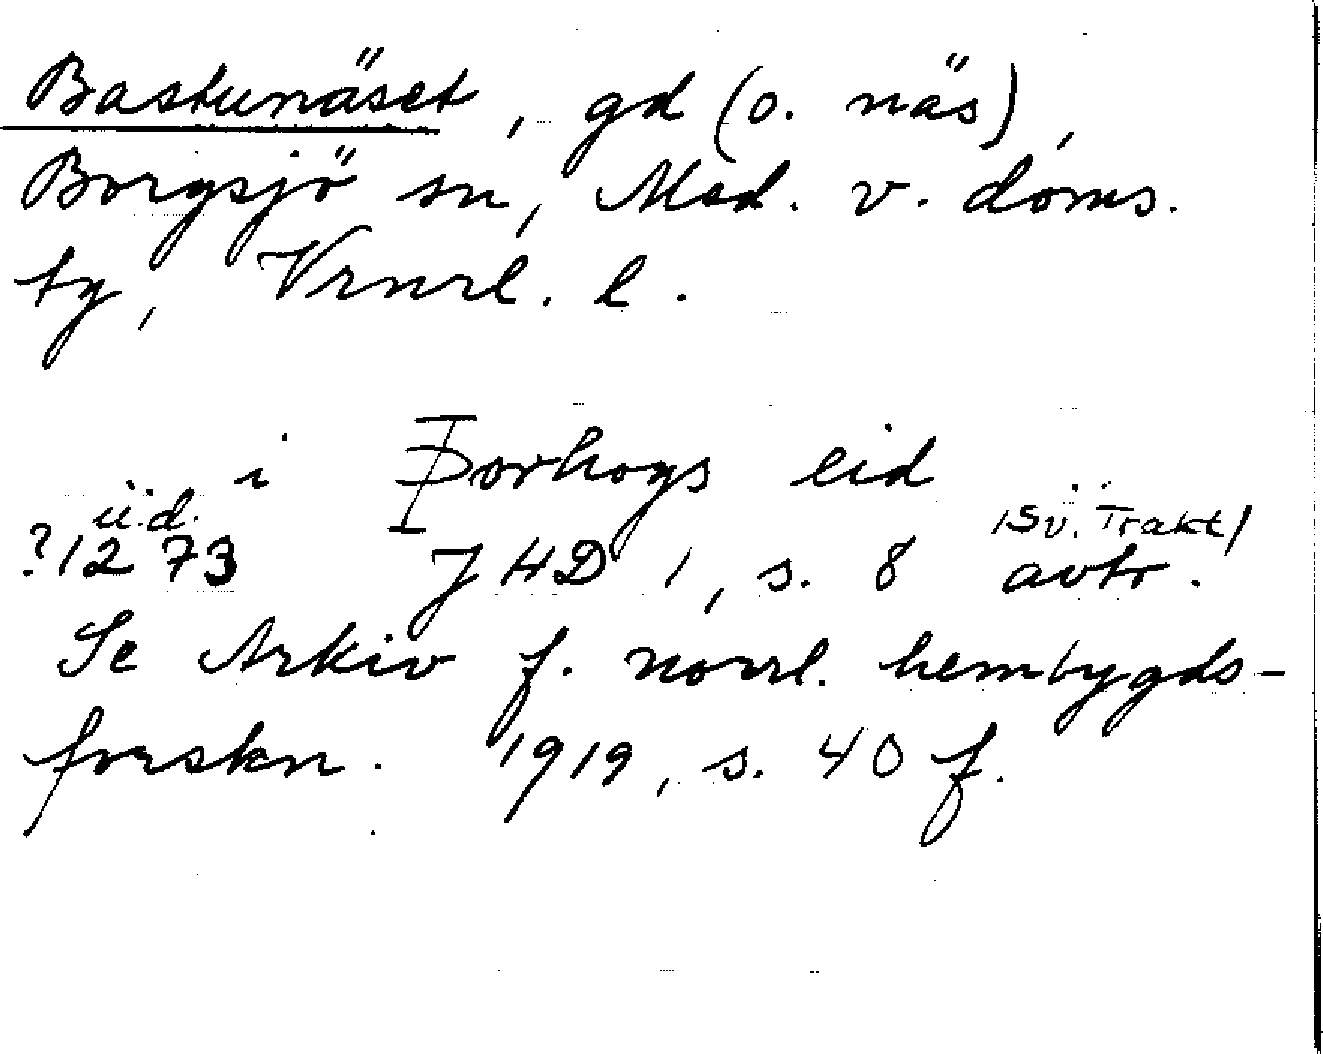 Bastunäset, gd (o. näs),
Borgsjö sn, Med. v. doms.
tg, Vrnrl. l.
i Þorhogs eid
u.d. /Sv. Trakt/
?1273 JHD 1, s. 8 avtr.
Se Arkiv f. norrl. hembygds-
forskn. 1919, s. 40 f.